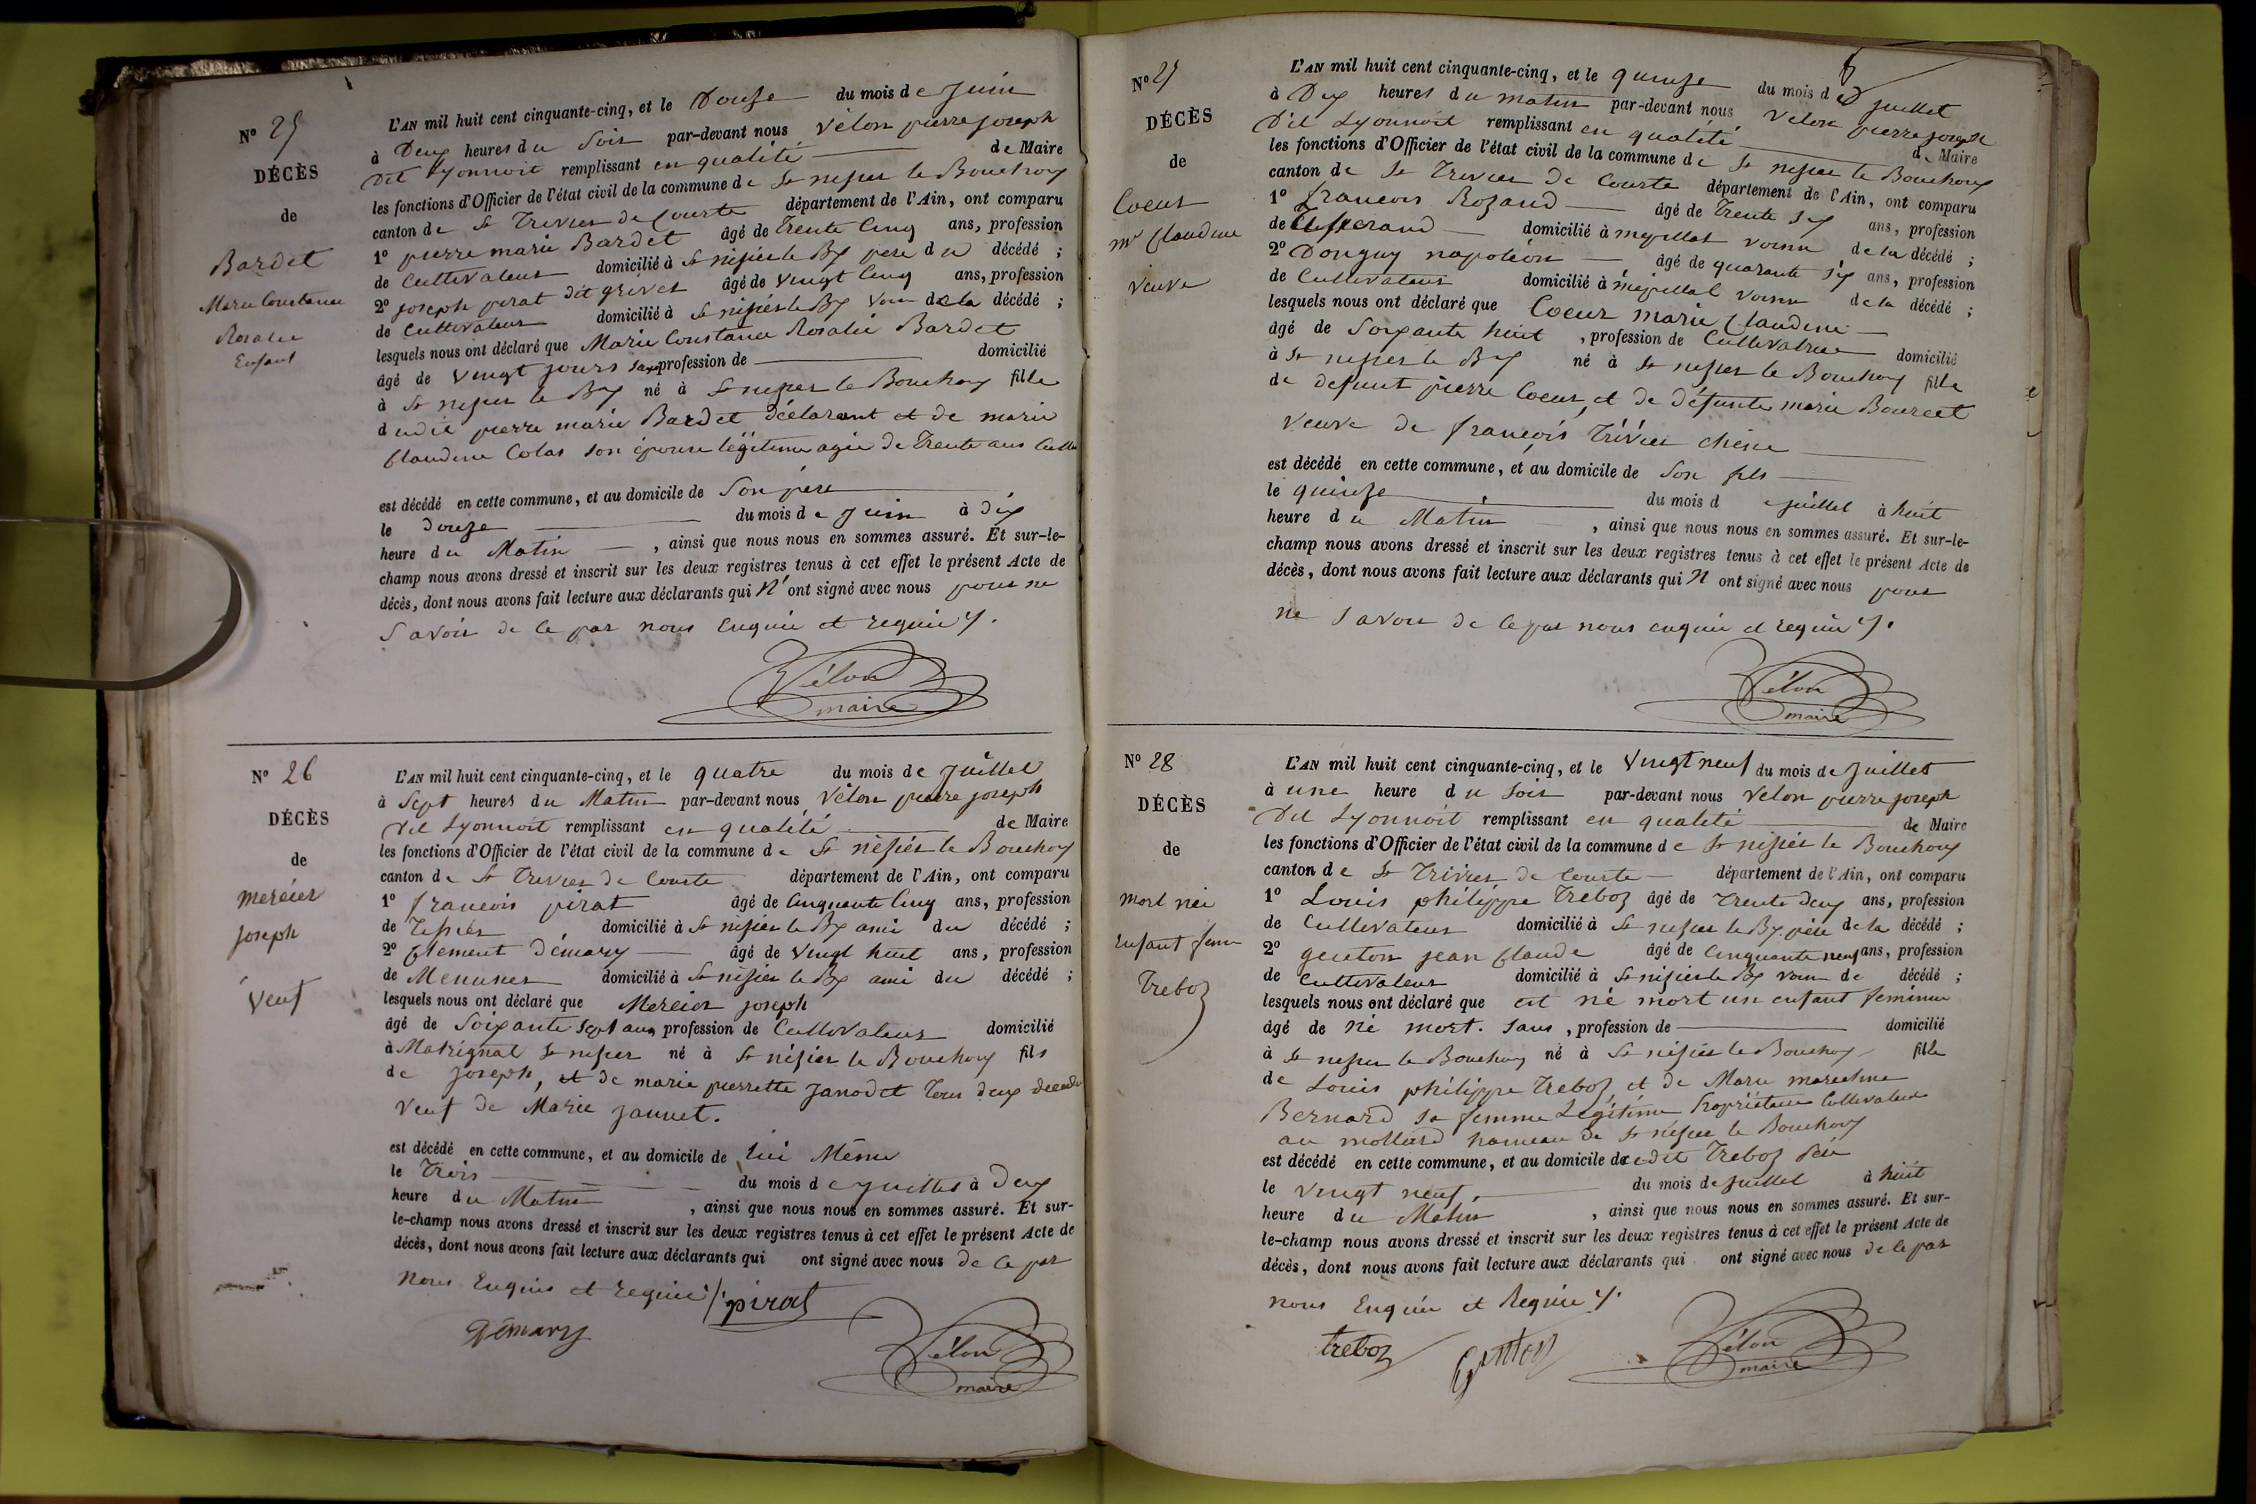 N° 25
DÉCÈS
de
Bardet
Marie Constance
Rosalie
Enfant
L'AN mil huit cent cinquante-cinq, et le Douze du mois de Juin
à Deux heures du Soir par-devant nous Vélon pierre joseph
dit Lyonnoit remplissant en qualité de Maire
les fonctions d'Officier de l'état civil de la commune de St nisier le Bouchoux
canton de St Trivier de Courte département de l'Ain, ont comparu
1° pierre marie Bardet âgé de Trente Cinq ans, profession
de Cultivateur domicilié à St nisier le Bx pere du décédé ;
2° joseph pirat dit grivet âgé de Vingt Cinq ans, profession
de Cultivateur domicilié à St nisier le Bx voin de la décédé ;
lesquels nous ont déclaré que Marie Constance Rosalie Bardet
âgé de Vingt jours sans profession de domicilié
à St nisier le Bx né à St nisier le Bouchoux fille
dudit pierre marie Bardet déclarant et de marie
Claudine Colas son épouse légitime agée de Trente ans
est décédé en cette commune, et au domicile de Son père
le douze du mois de Juin à dix
heure du Matin , ainsi que nous nous en sommes assuré. Et sur-le-
champ nous avons dressé et inscrit sur les deux registres tenus à cet effet le présent Acte de
décès, dont nous avons fait lecture aux déclarants qui N' ont signé avec nous pour ne
Savoir de ce par nous Enquis et requis ./.
Vélon
maire
N° 26
DÉCÈS
de
merçier
joseph
Veuf
L'AN mil huit cent cinquante-cinq, et le quatre du mois de Juillet
à Sept heures du Matin par-devant nous Vélon pierre joseph
dit Lyonnoit remplissant en qualité de Maire
les fonctions d'Officier de l'état civil de la commune de St nisier le Bouchoux
canton de St Trivier de Courte département de l'Ain, ont comparu
1° françois pirat âgé de Cinquante Cinq ans, profession
de Tissier domicilié à St nisier le Bx ami du décédé ;
2° Clement Démary âgé de Vingt huit ans, profession
de Menusier domicilié à St nisier le Bx ami du décédé ;
lesquels nous ont déclaré que Mercier joseph
âgé de Soixante Sept ans, profession de Cultivateur domicilié
à Matrignat St nisier né à St nisier le Bouchoux fils
de joseph, et de marie pierrette Janodet Tous deux
Veuf de Marie jannet.
est décédé en cette commune, et au domicile de lui Même
le Trois du mois de juillet à Deux
heure du Matin , ainsi que nous nous en sommes assuré. Et sur-
le-champ nous avons dressé et inscrit sur les deux registres tenus à cet effet le présent Acte de
décès, dont nous avons fait lecture aux déclarants qui ont signé avec nous de ce par
nous Enquis et requis ./. pirat
Démary
Vélon
maire
N° 27
DÉCÈS
de
Coeur
me Claudine
veuve
L'AN mil huit cent cinquante-cinq, et le quinze du mois de juillet
à Dix heures du matin par-devant nous Vélon pierre joseph
Dit Lyonnoit remplissant en qualité de Maire
les fonctions d'Officier de l'état civil de la commune de St nisier le Bouchoux
canton de St Trivier de Courte département de l'Ain, ont comparu
1° françois Rozand âgé de Trente Six ans, profession
de domicilié à mépillat voisin de la décédé ;
2° Donguy napoléon âgé de quarante Six ans, profession
de Cultivateur domicilié à mépillat voisin de la décédé ;
lesquels nous ont déclaré que Coeur marie Claudine
âgé de Soixante huit , profession de Cultivatrice domicilié
à St nisier le Bx né à St nisier le Bouchoux fille
de defunt pierre Coeur, et de défunte marie Bourcet
veuve de françois Trivier chêne
est décédé en cette commune, et au domicile de Son fils
le quinze du mois de juillet à huit
heure du Matin , ainsi que nous nous en sommes assuré. Et sur-le-
champ nous avons dressé et inscrit sur les deux registres tenus à cet effet le présent Acte de
décès, dont nous avons fait lecture aux déclarants qui N ont signé avec nous pour
ne Savoir de ce par nous enquis et requis ./.
Vélon
maire
N° 28
DÉCÈS
de
mort née
Enfant fémin
Treboz
L'AN mil huit cent cinquante-cinq, et le Vingt neuf du mois de Juillet
à une heure du Soir par-devant nous Velon pierre joseph
Dit Lyonnoit remplissant en qualité de Maire
les fonctions d'Officier de l'état civil de la commune de St nisier le Bouchoux
canton de St Trivier de Courte département de l'Ain, ont comparu
1° Louis philippe Treboz âgé de Trente deux ans, profession
de Cultivateur domicilié à St nisier le Bx père de la décédé ;
2° genton jean Claude âgé de Cinquante neuf ans, profession
de Cultivateur domicilié à St nisier le Bx voin de décédé ;
lesquels nous ont déclaré que est né mort un enfant feminin
âgé de né mort. Sans , profession de domicilié
à St nisier le Bouchoux né à St nisier le Bouchoux fille
de Louis philippe Treboz, et de Marie
Bernard sa femme Légitime Propriétaire Cultivateur
au mollard hameau de St nisier le Bouchoux
est décédé en cette commune, et au domicile de dit Treboz Père
le Vingt neuf, du mois de juillet à huit
heure du Matin , ainsi que nous nous en sommes assuré. Et sur-
le-champ nous avons dressé et inscrit sur les deux registres tenus à cet effet le présent Acte de
décès, dont nous avons fait lecture aux déclarants qui ont signé avec nous de ce par
nous Enquis et Requis ./.
treboz genton Vélon
maire